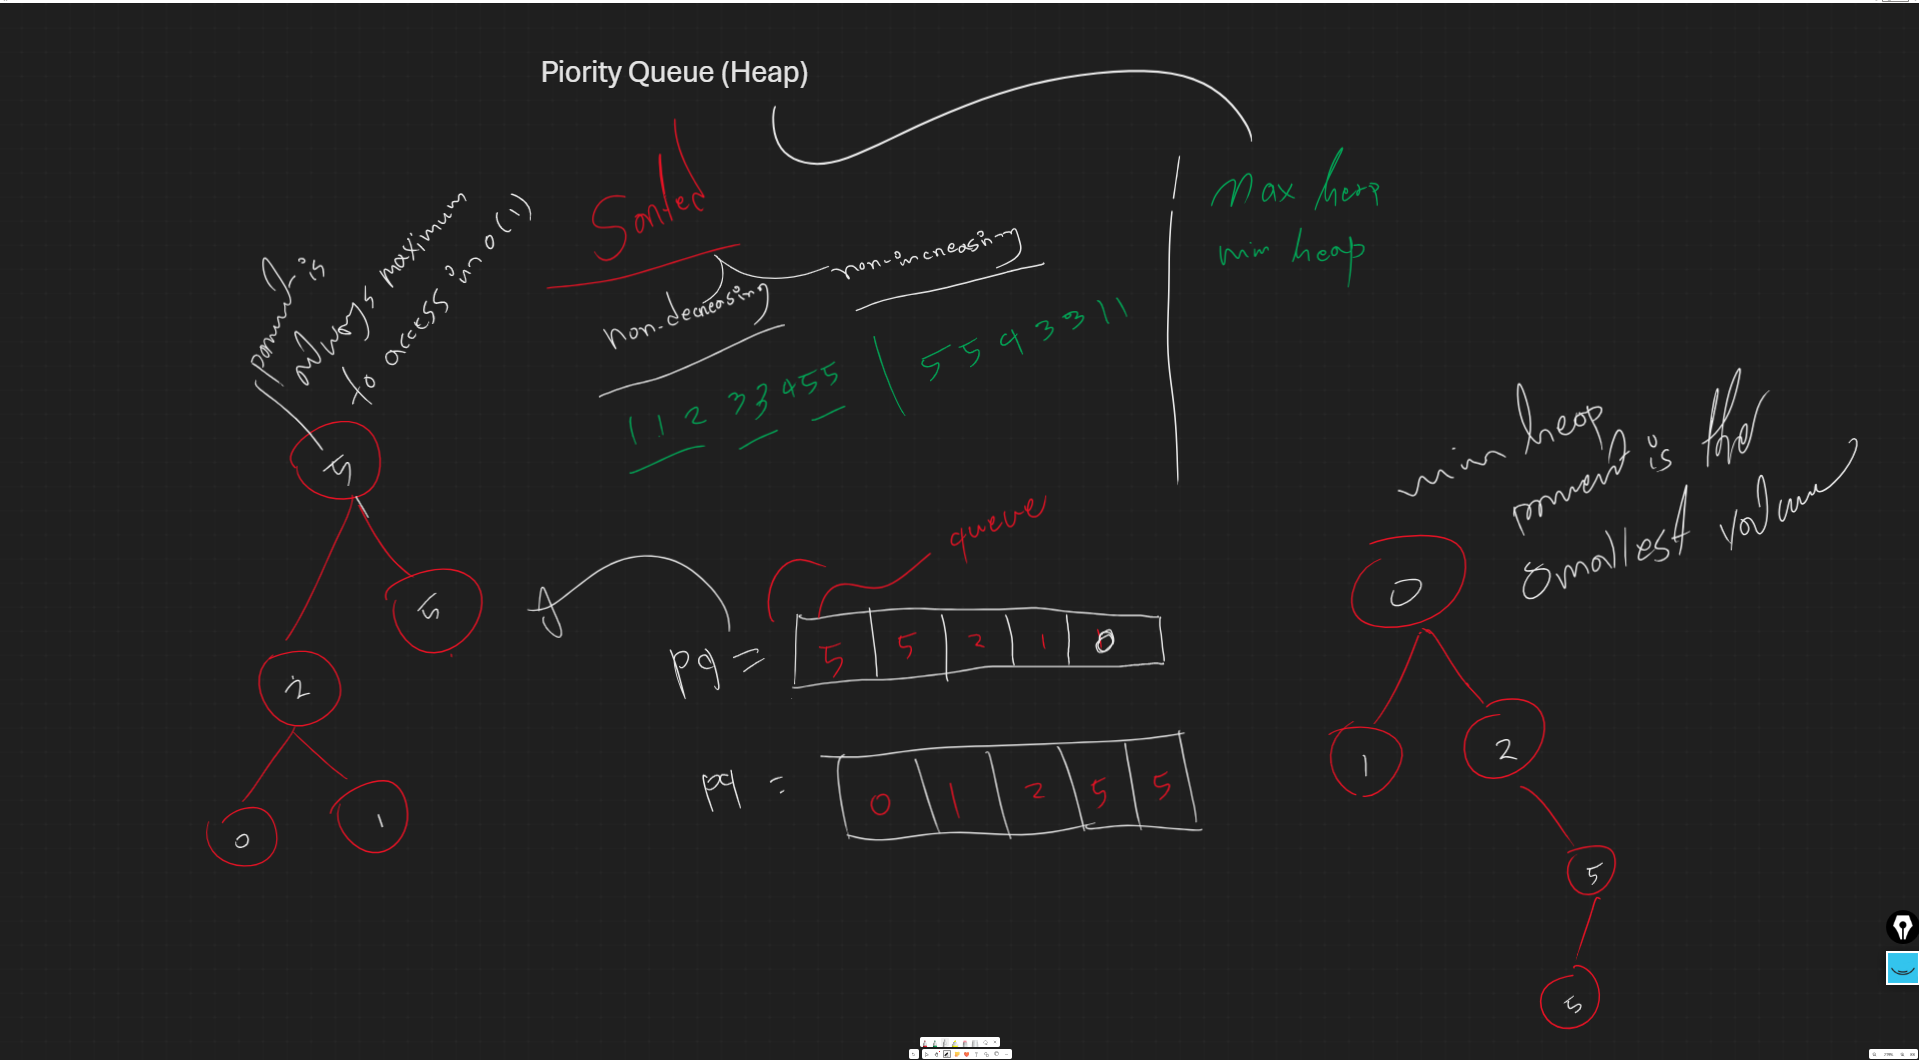 Piority Queue (Heap)
Sorted
non-decreasing
non-increasing
1 1 2 3 3 4 5 5
5 5 4 3 3 1 1
Max heap
min heap
parent is
always maximum
to access in O(1)
5
5
2
0
1
queue
pq = 5 5 2 1 0
pq = 0 1 2 5 5
min heap
parent is the
smallest value
0
1
2
5
5